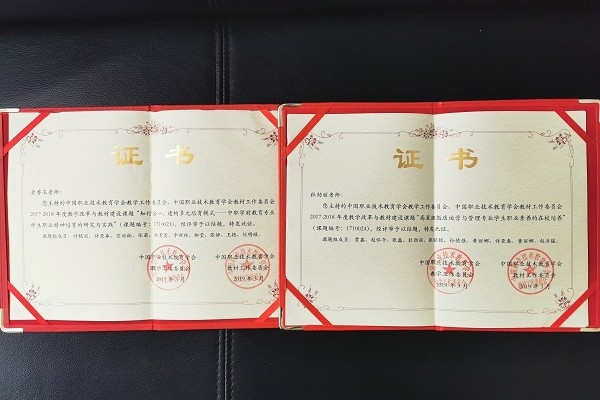 证书
老师：
您主持的中国职业技术教育学会教学工作委员会、中国职业技术教育学会教材工作委员会
2017-2018年度教学改革与教材建设课题“知行合一，建构多元培育模式——中职学前教育专业
学生职业精神培育的研究与实践”（课题编号：1710023），经评审予以结题，特发此证。
课题组成员：
中国职业技术教育学会 中国职业技术教育学会
教学工作委员会 教材工作委员会
2019年5月 2019年5月
证书
老师：
您主持的中国职业技术教育学会教学工作委员会、中国职业技术教育学会教材工作委员会
2017-2018年度教学改革与教材建设课题“高星级饭店运营与管理专业学生职业素养的在校培养”
（课题编号：1710024），经评审予以结题，特发此证。
课题组成员：
中国职业技术教育学会 中国职业技术教育学会
教学工作委员会 教材工作委员会
2019年5月 2019年5月